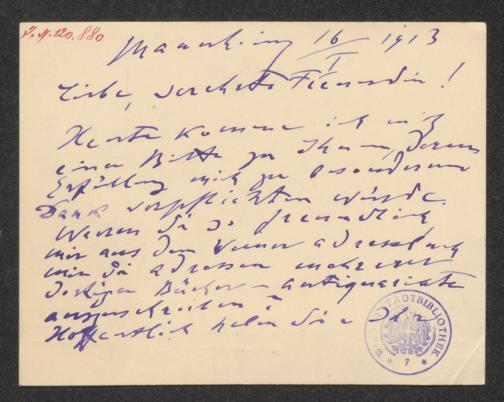 J. N. 120.880
16/I 1913
Liebe, verehrte Freundin!
Heute komme ich mit
einer Bitte zu Ihnen, deren
Erfüllung mich zu besonderem
Dank verpflichten würde.
Wären Sie so freundlich
mir aus dem Wiener Adressbuch
mir die Adressen mehrerer
dortigen Bücher-Antiquariate
auszuschreiben?
Hoffentlich haben Sie
STADTBIBLIOTHEK
7